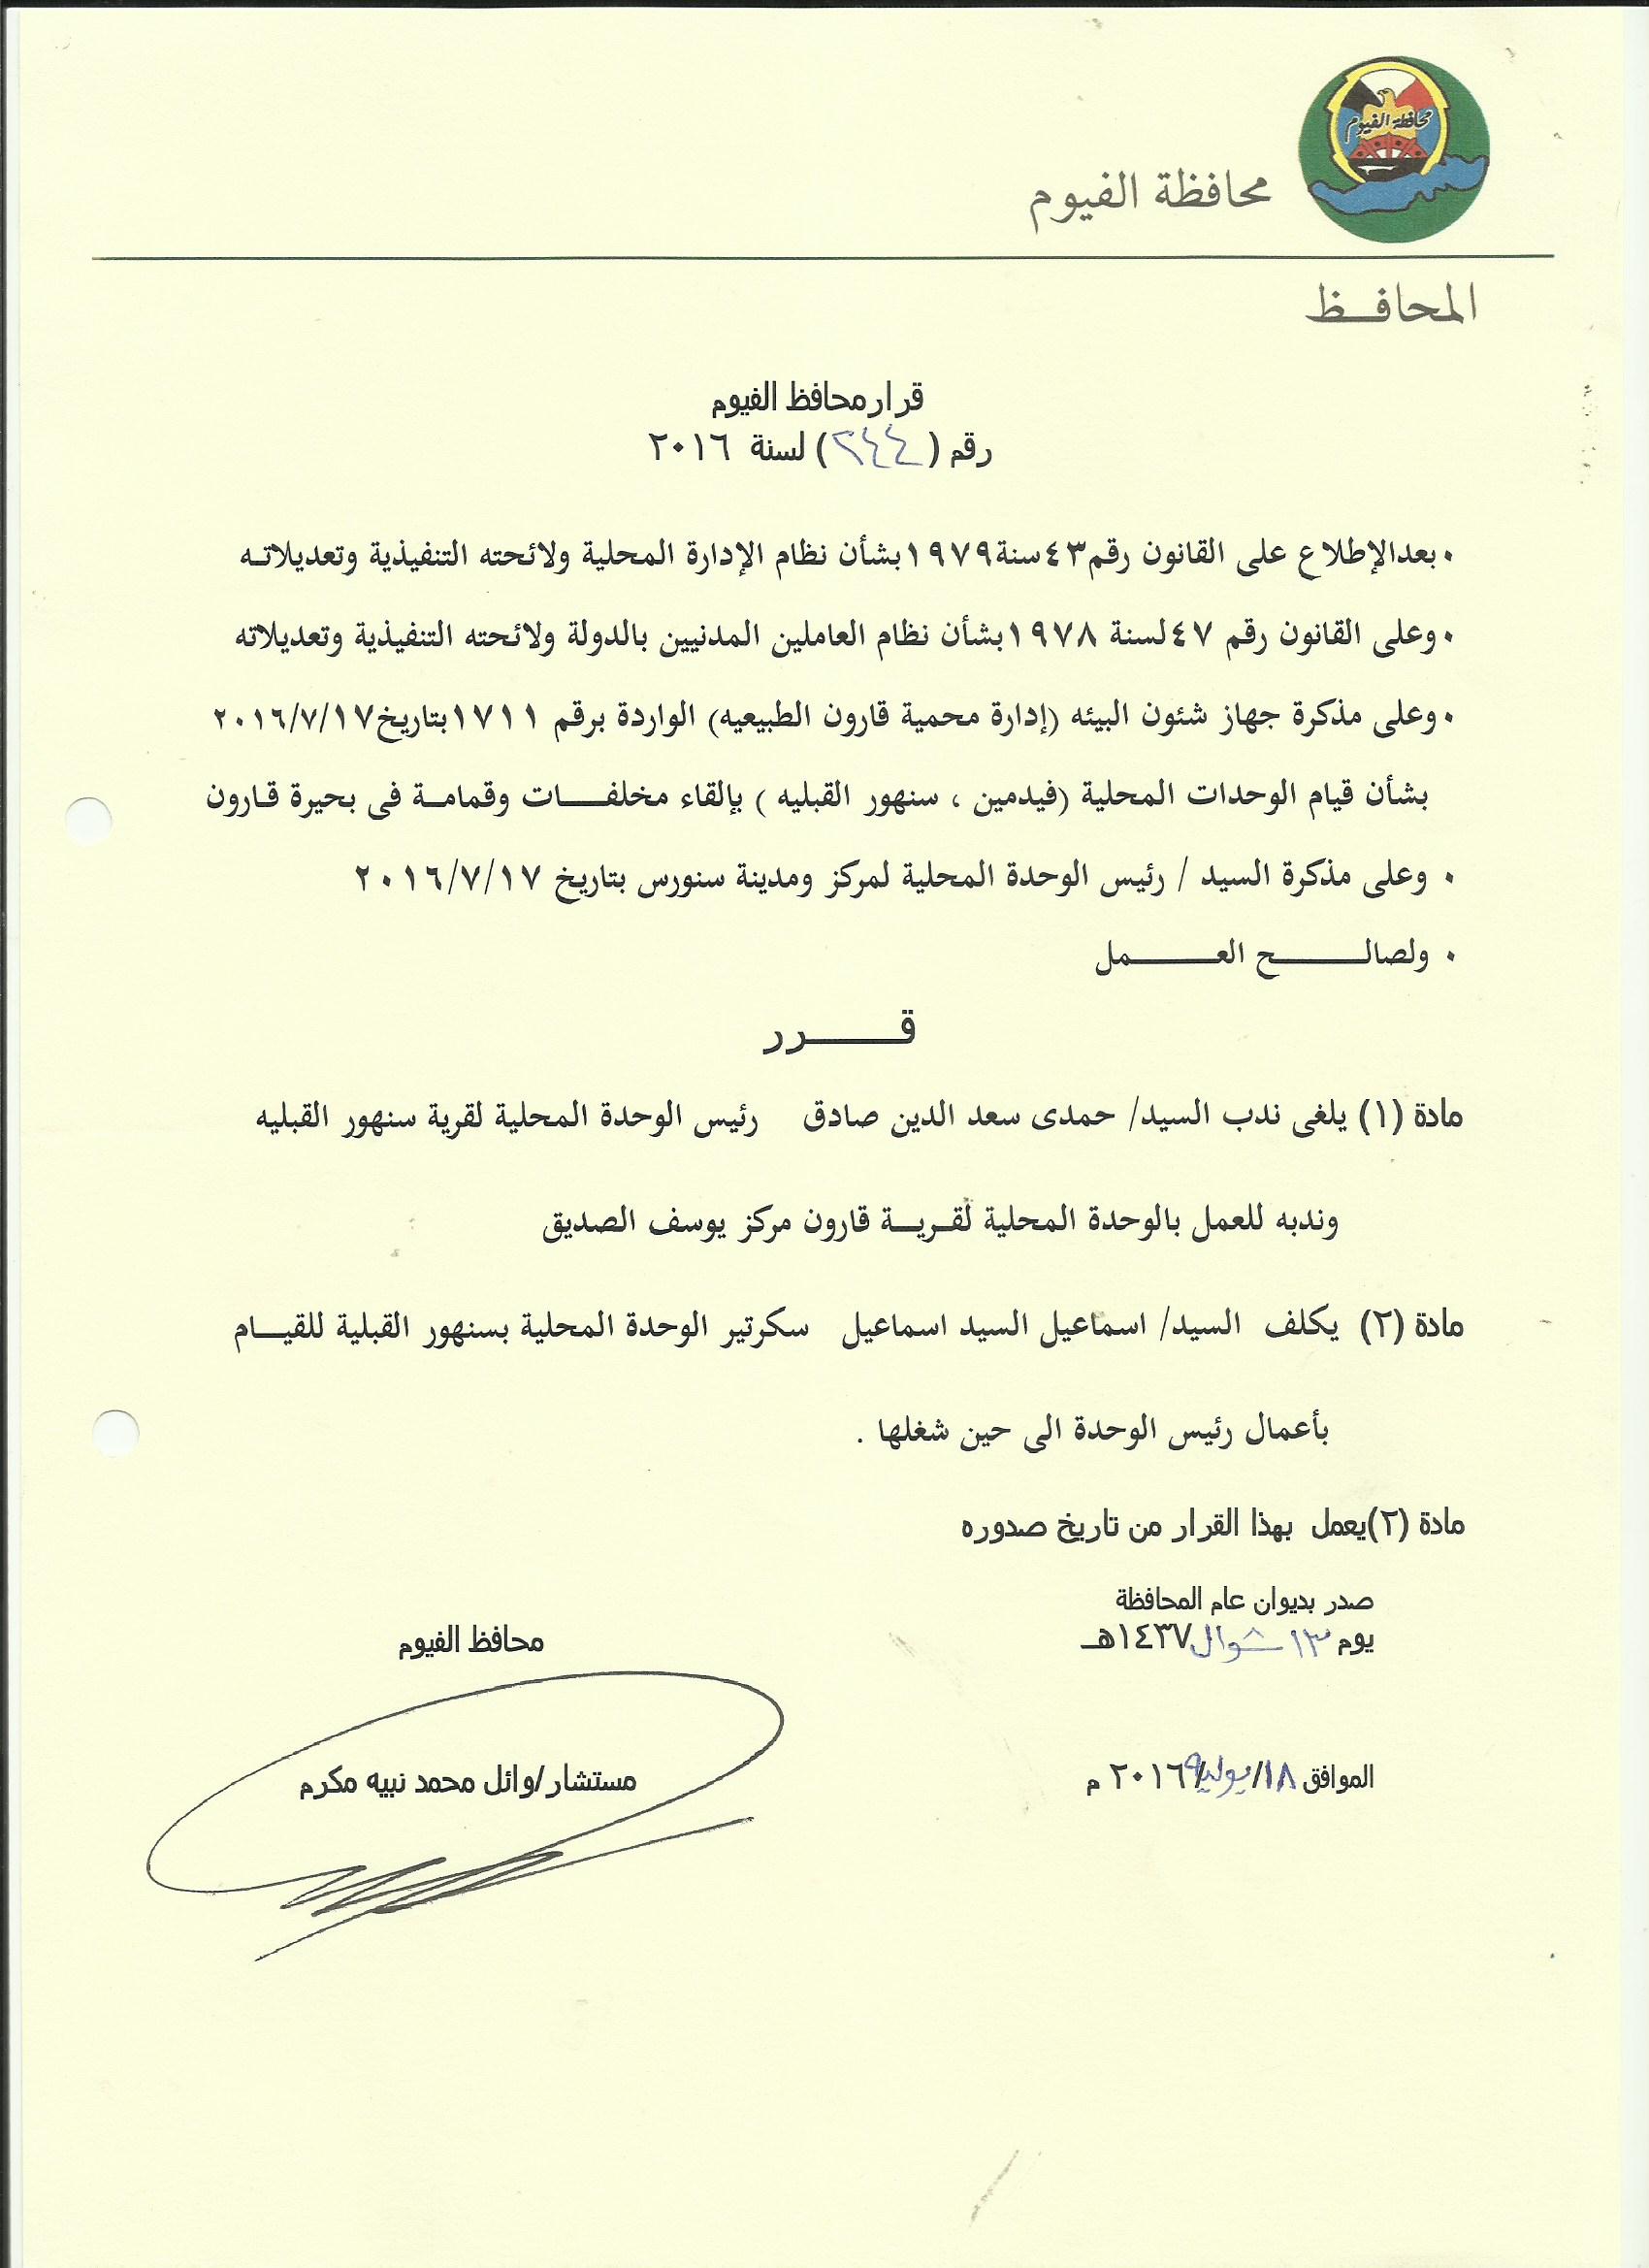 محافظة الفيوم
محافظة الفيوم
المحافــظ
قرار محافظ الفيوم
رقم (٦٤٤) لسنة ٢٠١٦
• بعدالإطلاع على القانون رقم ٤٣ سنة ١٩٧٩ بشأن نظام الإدارة المحلية ولائحته التنفيذية وتعديلاتـه
• وعلى القانون رقم ٤٧ لسنة ١٩٧٨ بشأن نظام العاملين المدنيين بالدولة ولائحته التنفيذية وتعديلاته
• وعلى مذكرة جهاز شئون البيئه (إدارة محمية قارون الطبيعيه) الواردة برقم ١٧١١ بتاريخ ٢٠١٦/٧/١٧
بشأن قيام الوحدات المحلية (فيدمين ، سنهور القبليه ) بإلقاء مخلفـــات وقمامـة فى بحيرة قـارون
• وعلى مذكرة السيد / رئيس الوحدة المحلية لمركز ومدينة سنورس بتاريخ ٢٠١٦/٧/١٧
• ولصالـــــــح العـــــــمل
قــــــرر
مادة (١) يلغى ندب السيد/ حمدى سعد الدين صادق رئيس الوحدة المحلية لقرية سنهور القبليه
وندبه للعمل بالوحدة المحلية لقـريــة قارون مركز يوسف الصديق
مادة (٢) يكلف السيد/ اسماعيل السيد اسماعيل سكرتير الوحدة المحلية بسنهور القبلية للقيــام
بأعمال رئيس الوحدة الى حين شغلها .
مادة (٢) يعمل بهذا القرار من تاريخ صدوره
صدر بديوان عام المحافظة
يوم ١٣ شوال ١٤٣٧هـ
محافظ الفيوم
الموافق ١٨/يوليو/٢٠١٦ م
مستشار/وائل محمد نبيه مكرم